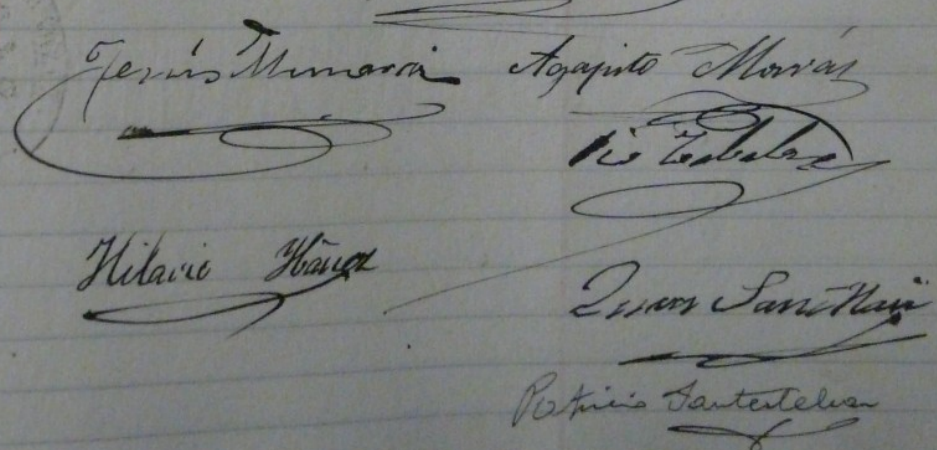 Jesús Munarriz Agapito Morrás
Pio Zabalza
Hilario Ibáñez
Juan San Martín
Patricio Santesteban